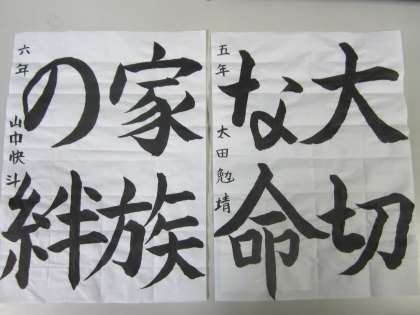 大切
な命
五年 太田勉靖
家族
の絆
六年 山中快斗